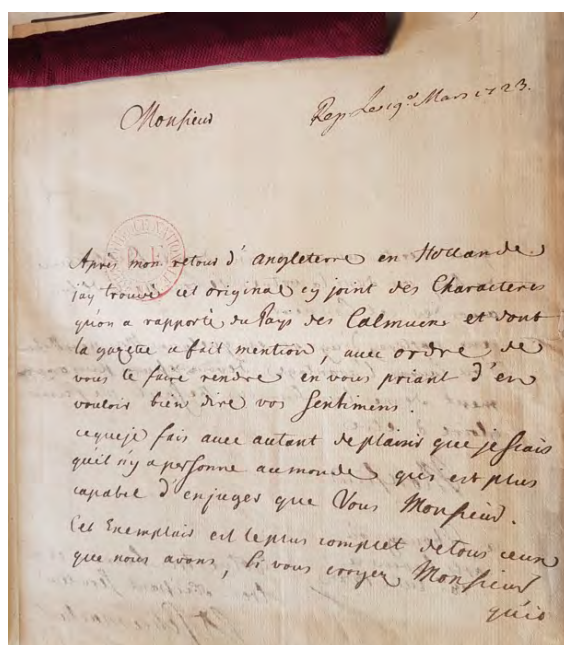 Monsieur
Rep Le 19e Mars 1723.
Apres mon retour d'angleterre en Hollande
j'ay trouvé cet original cy joint des Characteres
qu'on a rapporté du Pays des Calmucs et dont
la gazette a fait mention, avec ordre de
vous le faire rendre en vous priant d'en
vouloir bien dire vos sentimens.
ceque je fais avec autant de plaisir que je sçais
qu'il n'y a personne au monde qui est plus
capable d'en juger que Vous Monsieur.
Cet Exemplair est le plus complet de tous ceux
que nous avons, si vous croyez Monsieur
qu'il